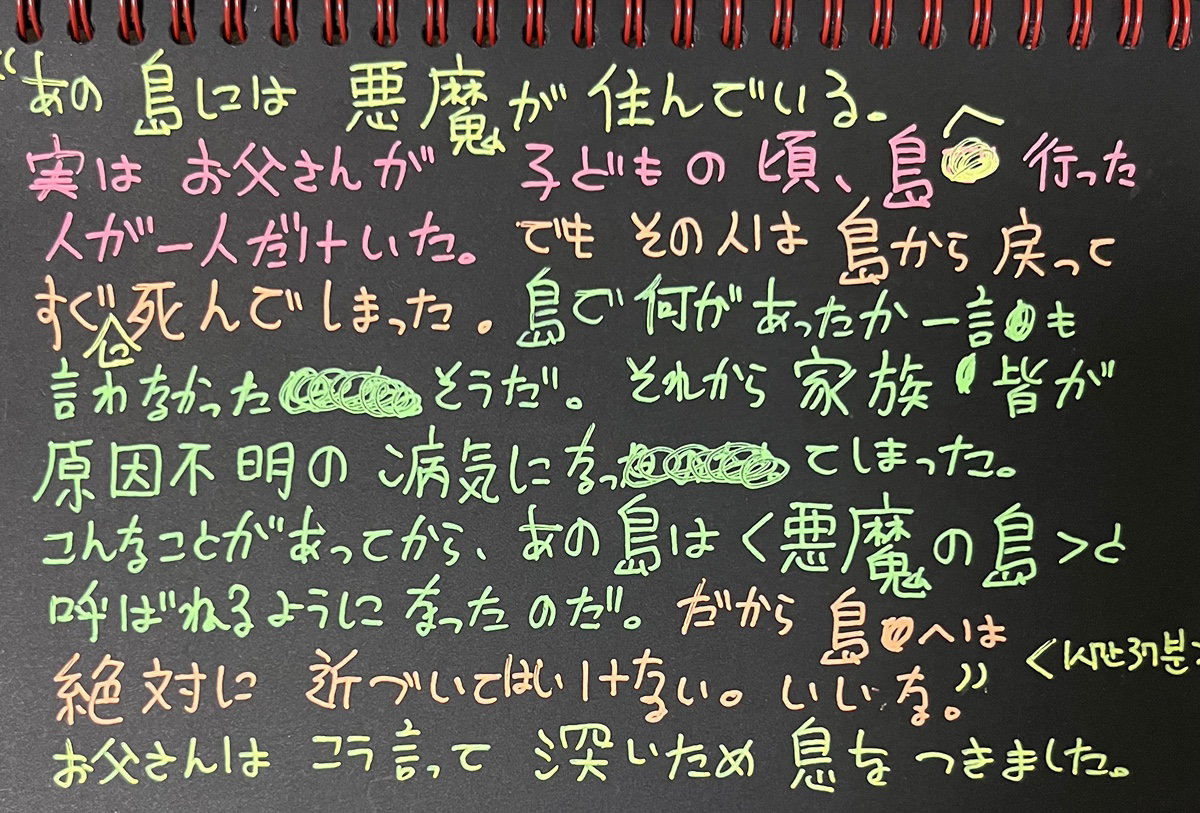 “あの島には悪魔が住んでいる。
実はお父さんが子どもの頃、島へ行った
人が一人だけいた。でもその人は島から戻って
すぐに死んでしまった。島で何があったか一言も
言わなかったそうだ。それから家族皆が
原因不明の病気になってしまった。
こんなことがあってから、あの島は<悪魔の島>と
呼ばれるようになったのだ。だから島へは
絶対に近づいてはいけない。いいな。”
<1시간37분>
お父さんはコう言って深いため息をつきました。